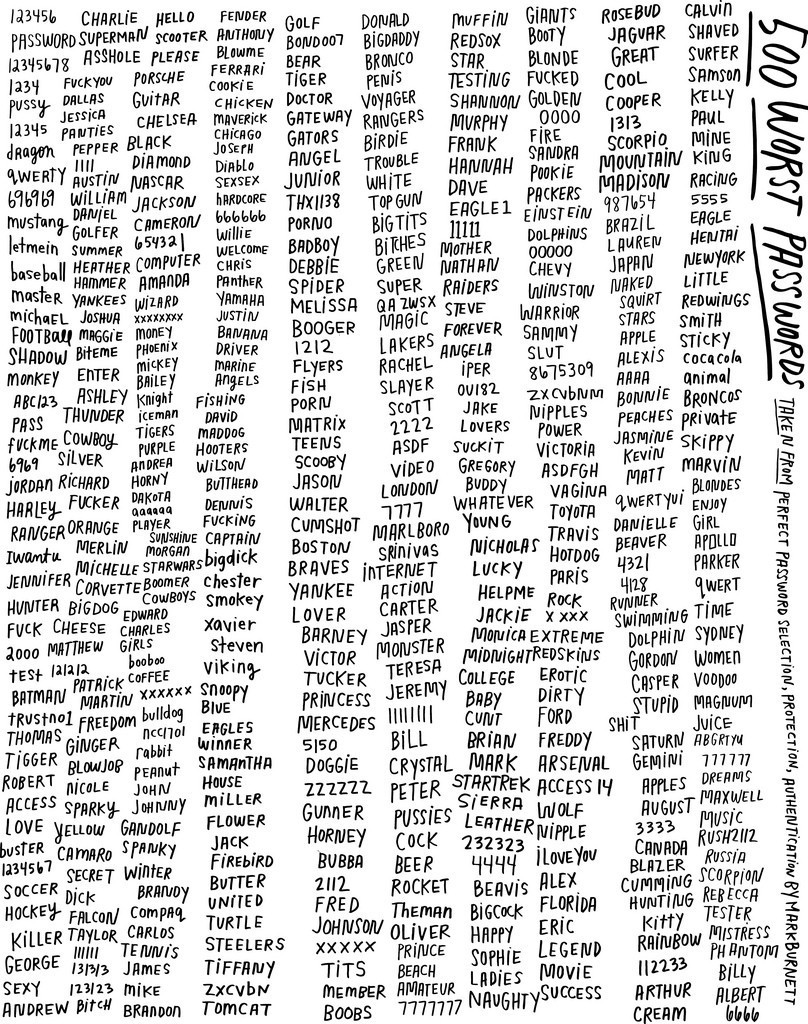 500 WORST PASSWORDS
TAKEN FROM PERFECT PASSWORD SELECTION, PROTECTION, AUTHENTICATION BY MARK BURNETT
123456
PASSWORD
12345678
1234
pussy
12345
dragon
qwERTY
696969
mustang
letmein
baseball
master
michaEL
FOOTBall
SHADOW
MONKEY
ABC123
PASS
fuckmE
6969
JORDAN
HARLEY
RANGER
Iwantu
JENNiFER
HUNTER
FUCK
2000
tEST
BATMAN
trustno1
THOMAS
TiGGER
ROBERT
ACCESS
LOVE
buster
1234567
SOCCER
HOCKEY
KiLLER
GEORGE
SEXY
ANDREW
CHARLiE
SUPERMAN
ASSHOLE
FUCKYOU
DALLAS
JESSiCA
PANTiES
PEPPER
1111
AUSTiN
WiLLiAM
DANiEL
GOLFER
SUMMER
HEATHER
HAMMER
YANKEES
JOSHUA
MAGGiE
BiTEME
ENTER
ASHLEY
THUNDER
COWBOY
SiLVER
RiCHARD
FUCKER
ORANGE
MERLiN
MiCHELLE
CORVETTE
BiGDOG
CHEESE
MATTHEW
121212
PATRiCK
MARTiN
FREEDOM
GiNGER
BLOWJOB
NiCOLE
SPARKY
YELLOW
CAMARO
SECRET
DiCK
FALCON
TAYLOR
111111
131313
123123
BiTCH
HELLO
SCOOTER
PLEASE
PORSCHE
GUiTAR
CHELSEA
BLACK
DiAMOND
NASCAR
JACKSON
CAMERON
654321
COMPUTER
AMANDA
WiZARD
xxxxxxxx
MONEY
PHOENiX
mickEY
BAiLEY
Knight
iceman
TiGERS
PURPLE
ANDREA
HORNY
DAKOTA
aaaaaa
PLAYER
SUNSHiNE
MORGAN
STARWARS
BOOMER
COWBOYS
EDWARD
CHARLES
GiRLS
booboo
COFFEE
xxxxxx
bulldog
ncc1701
rabbit
PEANUT
JOHN
JOHNNY
GANDOLF
SPANKY
WiNTER
BRANDY
COMPAQ
CARLOS
TENNiS
JAMES
MiKE
BRANDON
FENDER
ANTHONY
BLOWME
FERRARi
COOKiE
CHiCKEN
MAVERiCK
CHiCAGO
JOSEPH
DiABLO
SEXSEX
HARDCORE
666666
WiLLiE
WELCOME
CHRiS
PANTHER
YAMAHA
JUSTiN
BANANA
DRiVER
MARiNE
ANGELS
FiSHiNG
DAViD
MADDOG
HOOTERS
WiLSON
BUTTHEAD
DENNiS
FUCKiNG
CAPTAiN
bigdick
chester
SMOKEY
xavier
STEVEN
viking
SNOOPY
BLUE
EAGLES
WiNNER
SAMANTHA
HOUSE
MiLLER
FLOWER
JACK
FiREBiRD
BUTTER
UNiTED
TURTLE
STEELERS
TiFFANY
ZXCVBN
TOMCAT
GOLF
BOND007
BEAR
TiGER
DOCTOR
GATEWAY
GATORS
ANGEL
JUNiOR
THX1138
PORNO
BADBOY
DEBBiE
SPiDER
MELiSSA
BOOGER
1212
FLYERS
FiSH
PORN
MATRiX
TEENS
SCOOBY
JASON
WALTER
CUMSHOT
BOSTON
BRAVES
YANKEE
LOVER
BARNEY
ViCTOR
TUCKER
PRiNCESS
MERCEDES
5150
DOGGiE
ZZZZZZ
GUNNER
HORNEY
BUBBA
2112
FRED
JOHNSON
XXXXX
TiTS
MEMBER
BOOBS
DONALD
BiGDADDY
BRONCO
PENiS
VOYAGER
RANGERS
BiRDiE
TROUBLE
WHiTE
TOPGUN
BiGTiTS
BiTCHES
GREEN
SUPER
QAZWSX
MAGiC
LAKERS
RACHEL
SLAYER
SCOTT
2222
ASDF
ViDEO
LONDON
7777
MARLBORO
SRiNiVAS
iNTERNET
ACTiON
CARTER
JASPER
MONSTER
TERESA
JEREMY
11111111
BiLL
CRYSTAL
PETER
PUSSiES
COCK
BEER
ROCKET
THEMAN
OLiVER
PRiNCE
BEACH
AMATEUR
7777777
MUFFiN
REDSOX
STAR
TESTiNG
SHANNON
MURPHY
FRANK
HANNAH
DAVE
EAGLE1
11111
MOTHER
NATHAN
RAiDERS
STEVE
FOREVER
ANGELA
iPER
OU182
JAKE
LOVERS
SUCKiT
GREGORY
BUDDY
WHATEVER
YOUNG
NiCHOLAS
LUCKY
HELPME
JACKiE
MONiCA
MiDNiGHT
COLLEGE
BABY
CUNT
BRiAN
MARK
STARTREK
SiERRA
LEATHER
232323
4444
BEAViS
BiGCOCK
HAPPY
SOPHiE
LADiES
NAUGHTY
GiANTS
BOOTY
BLONDE
FUCKED
GOLDEN
0000
FiRE
SANDRA
POOKiE
PACKERS
EiNSTEiN
DOLPHiNS
00000
CHEVY
WiNSTON
WARRiOR
SAMMY
SLUT
8675309
ZXCVbNM
NiPPLES
POWER
ViCTORiA
ASDFGH
VAGiNA
TOYOTA
TRAViS
HOTDOG
PARiS
ROCK
XXXX
EXTREME
REDSKiNS
EROTiC
DiRTY
FORD
FREDDY
ARSENAL
ACCESS14
WOLF
NiPPLE
iLOVEYOU
ALEX
FLORiDA
ERiC
LEGEND
MOViE
SUCCESS
ROSEBUD
JAGUAR
GREAT
COOL
COOPER
1313
SCORPiO
MOUNTAiN
MADiSON
987654
BRAZiL
LAUREN
JAPAN
NAKED
SQUiRT
STARS
APPLE
ALEXiS
AAAA
BONNiE
PEACHES
JASMiNE
KEViN
MATT
qwERTYUi
DANiELLE
BEAVER
4321
4128
RUNNER
SWiMMiNG
DOLPHiN
GORDON
CASPER
STUPiD
SHiT
SATURN
GEMiNi
APPLES
AUGUST
3333
CANADA
BLAZER
CUMMiNG
HUNTiNG
KiTTY
RAiNBOW
112233
ARTHUR
CREAM
CALViN
SHAVED
SURFER
SAMSON
KELLY
PAUL
MiNE
KiNG
RACiNG
5555
EAGLE
HENTAi
NEWYORK
LiTTLE
REDWiNGS
SMiTH
STiCKY
cocacola
animal
BRONCOS
PRiVATE
SKiPPY
MARViN
BLONDES
ENJOY
GiRL
APOLLO
PARKER
qwERT
TiME
SYDNEY
WOMEN
VOODOO
MAGNUM
JUiCE
ABGRTYU
777777
DREAMS
MAXWELL
MUSiC
RUSH2112
RUSSiA
SCORPiON
REBECCA
TESTER
MiSTRESS
PHANTOM
BiLLY
ALBERT
6666